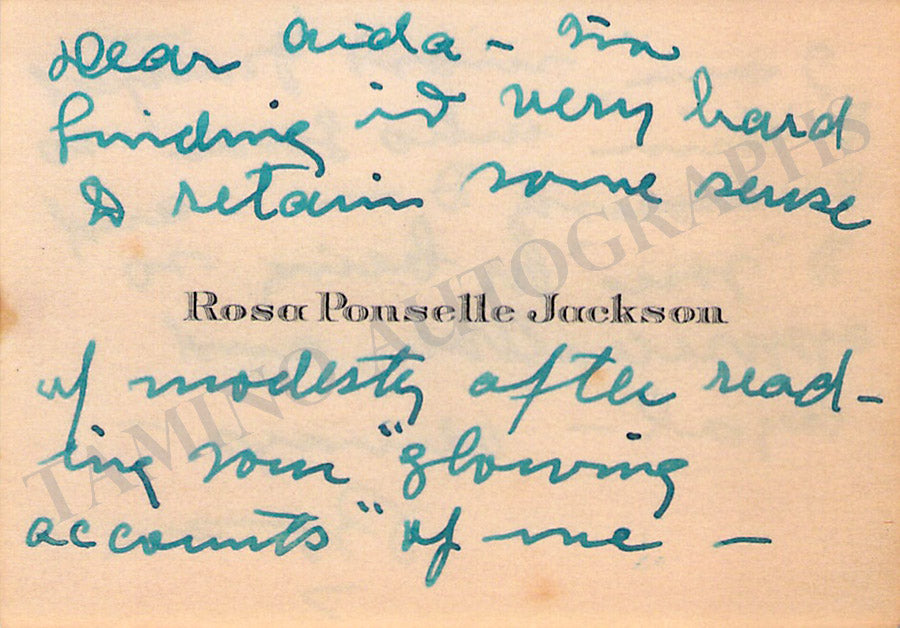 Dear Aida – I'm
finding it very hard
to retain some sense
Rosa Ponselle Jackson
of modesty after read-
ing your "glowing
accounts" of me –
TAMINO AUTOGRAPHS